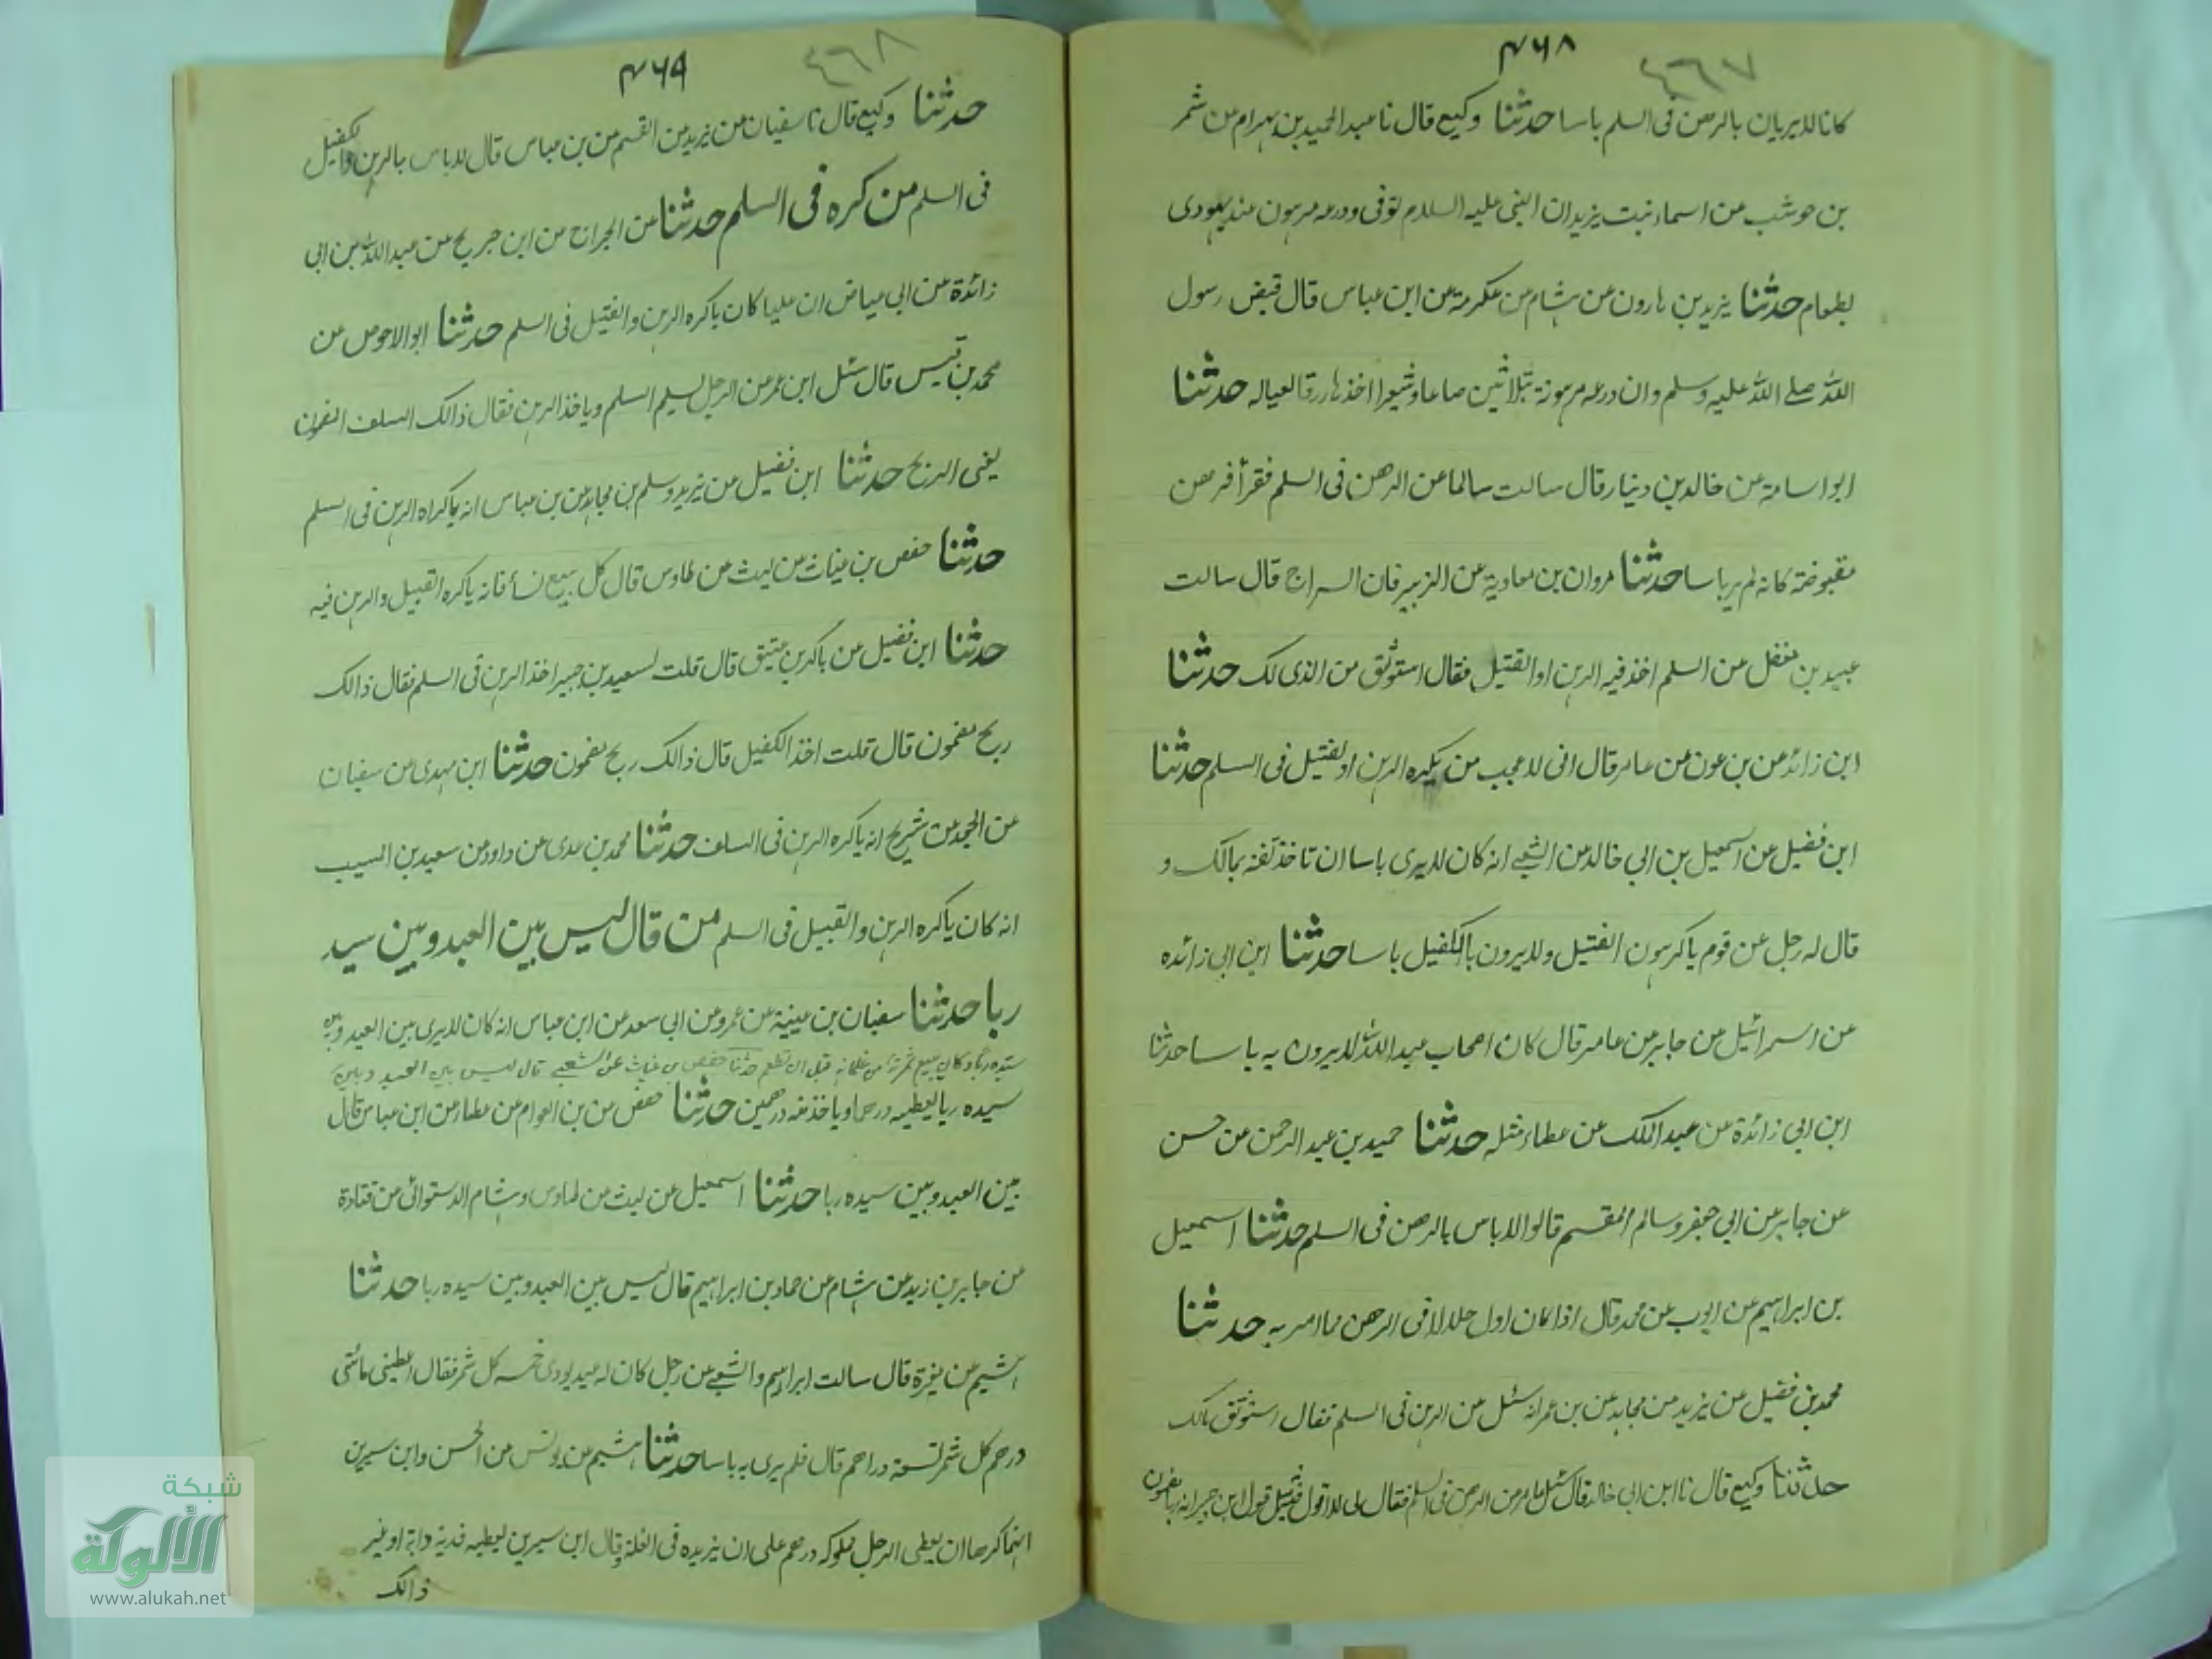 ۴۶۸
٤٦٧
كانا لا يريان بالرهن فى السلم باسا حدثنا وكيع قال نا عبد الحميد بن بهرام عن شهر
بن حوشب عن اسماء بنت يزيد ان النبى عليه السلام توفى ودرعه مرهون عند يهودى
بطعام حدثنا يزيد بن هارون عن هشام عن عكرمة عن ابن عباس قال قبض رسول
الله صلى الله عليه وسلم وان درعه مرهونة بثلاثين صاعا وشعيرا اخذها رزقا لعياله حدثنا
ابو اسامة عن خالد بن دينار قال سالت سالما عن الرهن فى السلم فقرأ فرهن
مقبوضة كانه لم ير باسا حدثنا مروان بن معاوية عن الزبير فان السراج قال سالت
عبيد بن مغفل عن السلم اخذ فيه الرهن او القتيل فقال استوثق من الذى لك حدثنا
ابن زائد عن بن عون عن عامر قال انى لا عجب من يكره الرهن او لفتيل فى السلم حدثنا
ابن فضيل عن اسمعيل بن ابى خالد عن الشعبى انه كان لا يرى باسا ان تاخذ ثقة بمالك و
قال له رجل عن قوم يا كرهون الفتيل ولا يرون با لكفيل باسا حدثنا ابن ابى زائده
عن اسرائيل عن جابر عن عامر قال كان اصحاب عبد الله لا يرون به باسا حدثنا
ابن ابى زائدة عن عبد الملك عن عطاء مثله حدثنا حميد بن عبد الرحمن عن حسن
عن جابر عن ابى جعفر وسالم المقسم قالوا لا باس بالرهن فى السلم حدثنا اسمعيل
بن ابراهيم عن ايوب عن محمد قال اذا كان اول حلالا فى الرهن مما امر به حدثنا
محمد بن فضيل عن يزيد عن مجاهد عن بن عمر انه سئل عن الرهن فى السلم فقال استوثق مالك
حدثنا وكيع قال نا ابن ابى خالد قال سئل عامر عن الرهن فى السلم فقال لى لا اقول فقيل قول ابن جبير انه ربا مضمون
۴۶۹
٤٦٨
حدثنا وكيع قال نا سفيان عن يزيد عن القسم عن بن عباس قال لا باس بالرهن والكفيل
فى السلم من كره فى السلم حدثنا عن الجراح عن ابن جريج عن عبد الله بن ابى
زائدة عن ابى عياض ان عليا كان ياكره الرهن والفتيل فى السلم حدثنا ابو الاحوص عن
محمد بن قيس قال سئل ابن عمر عن الرجل يسلم السلم وياخذ الرهن فقال ذالك السلف المضمون
يغنى الربح حدثنا ابن فضيل عن يزيد وسلم بن مجاهد عن بن عباس انه ياكراه الرهن فى السلم
حدثنا حفص بن غياث عن ليث عن طاوس قال كل بيع نسأ فانه ياكره القبيل والرهن فيه
حدثنا ابن فضيل عن باكر بن عتيق قال قلت لسعيد بن جبير اخذ الرهن فى السلم فقال ذالك
ربح مضمون قال قلت اخذ الكفيل قال ذالك ربح مضمون حدثنا ابن مهدى عن سفيان
عن الجعد عن شريح انه ياكره الرهن فى السلف حدثنا محمد بن عدى عن داود عن سعيد بن المسيب
انه كان ياكره الرهن والقبيل فى السلم من قال ليس بين العبد وبين سيد
ربا حدثنا سفيان بن عيينة عن عمرو عن ابى سعد عن ابن عباس انه كان لا يرى بين العبد وبين
سيده ربا وكان يبيع ثمرته من غلمانه قبل ان تطعم حدثنا حفص بن غياث عن الشعبى قال ليس بين العبد وبين
سيده ربا يعطيه درهما وياخذ منه درهمين حدثنا حفص عن بن العوام عن عطاء عن ابن عباس قال
بين العبد وبين سيده ربا حدثنا اسمعيل عن ليث عن طاوس وهشام الدستوائى عن قتادة
عن جابر بن زيد عن هشام عن حماد بن ابراهيم قال ليس بين العبد وبين سيده ربا حدثنا
هشيم عن مغيرة قال سالت ابراهيم والشعبى عن رجل كان له عبد يودى خمسه كل شهر فقال اعطينى مائتى
درهم كل شهر تسعة دراهم قال فلم يرى به باسا حدثنا هشيم عن يونس عن الحسن وابن سيرين
انهما كرها ان يعطى الرجل مملوكه درهم على ان يزيده فى الغلة وقال ابن سيرين يعطيه فدية دابة او غير
ذالك
شبكة
الألوكة
www.alukah.net